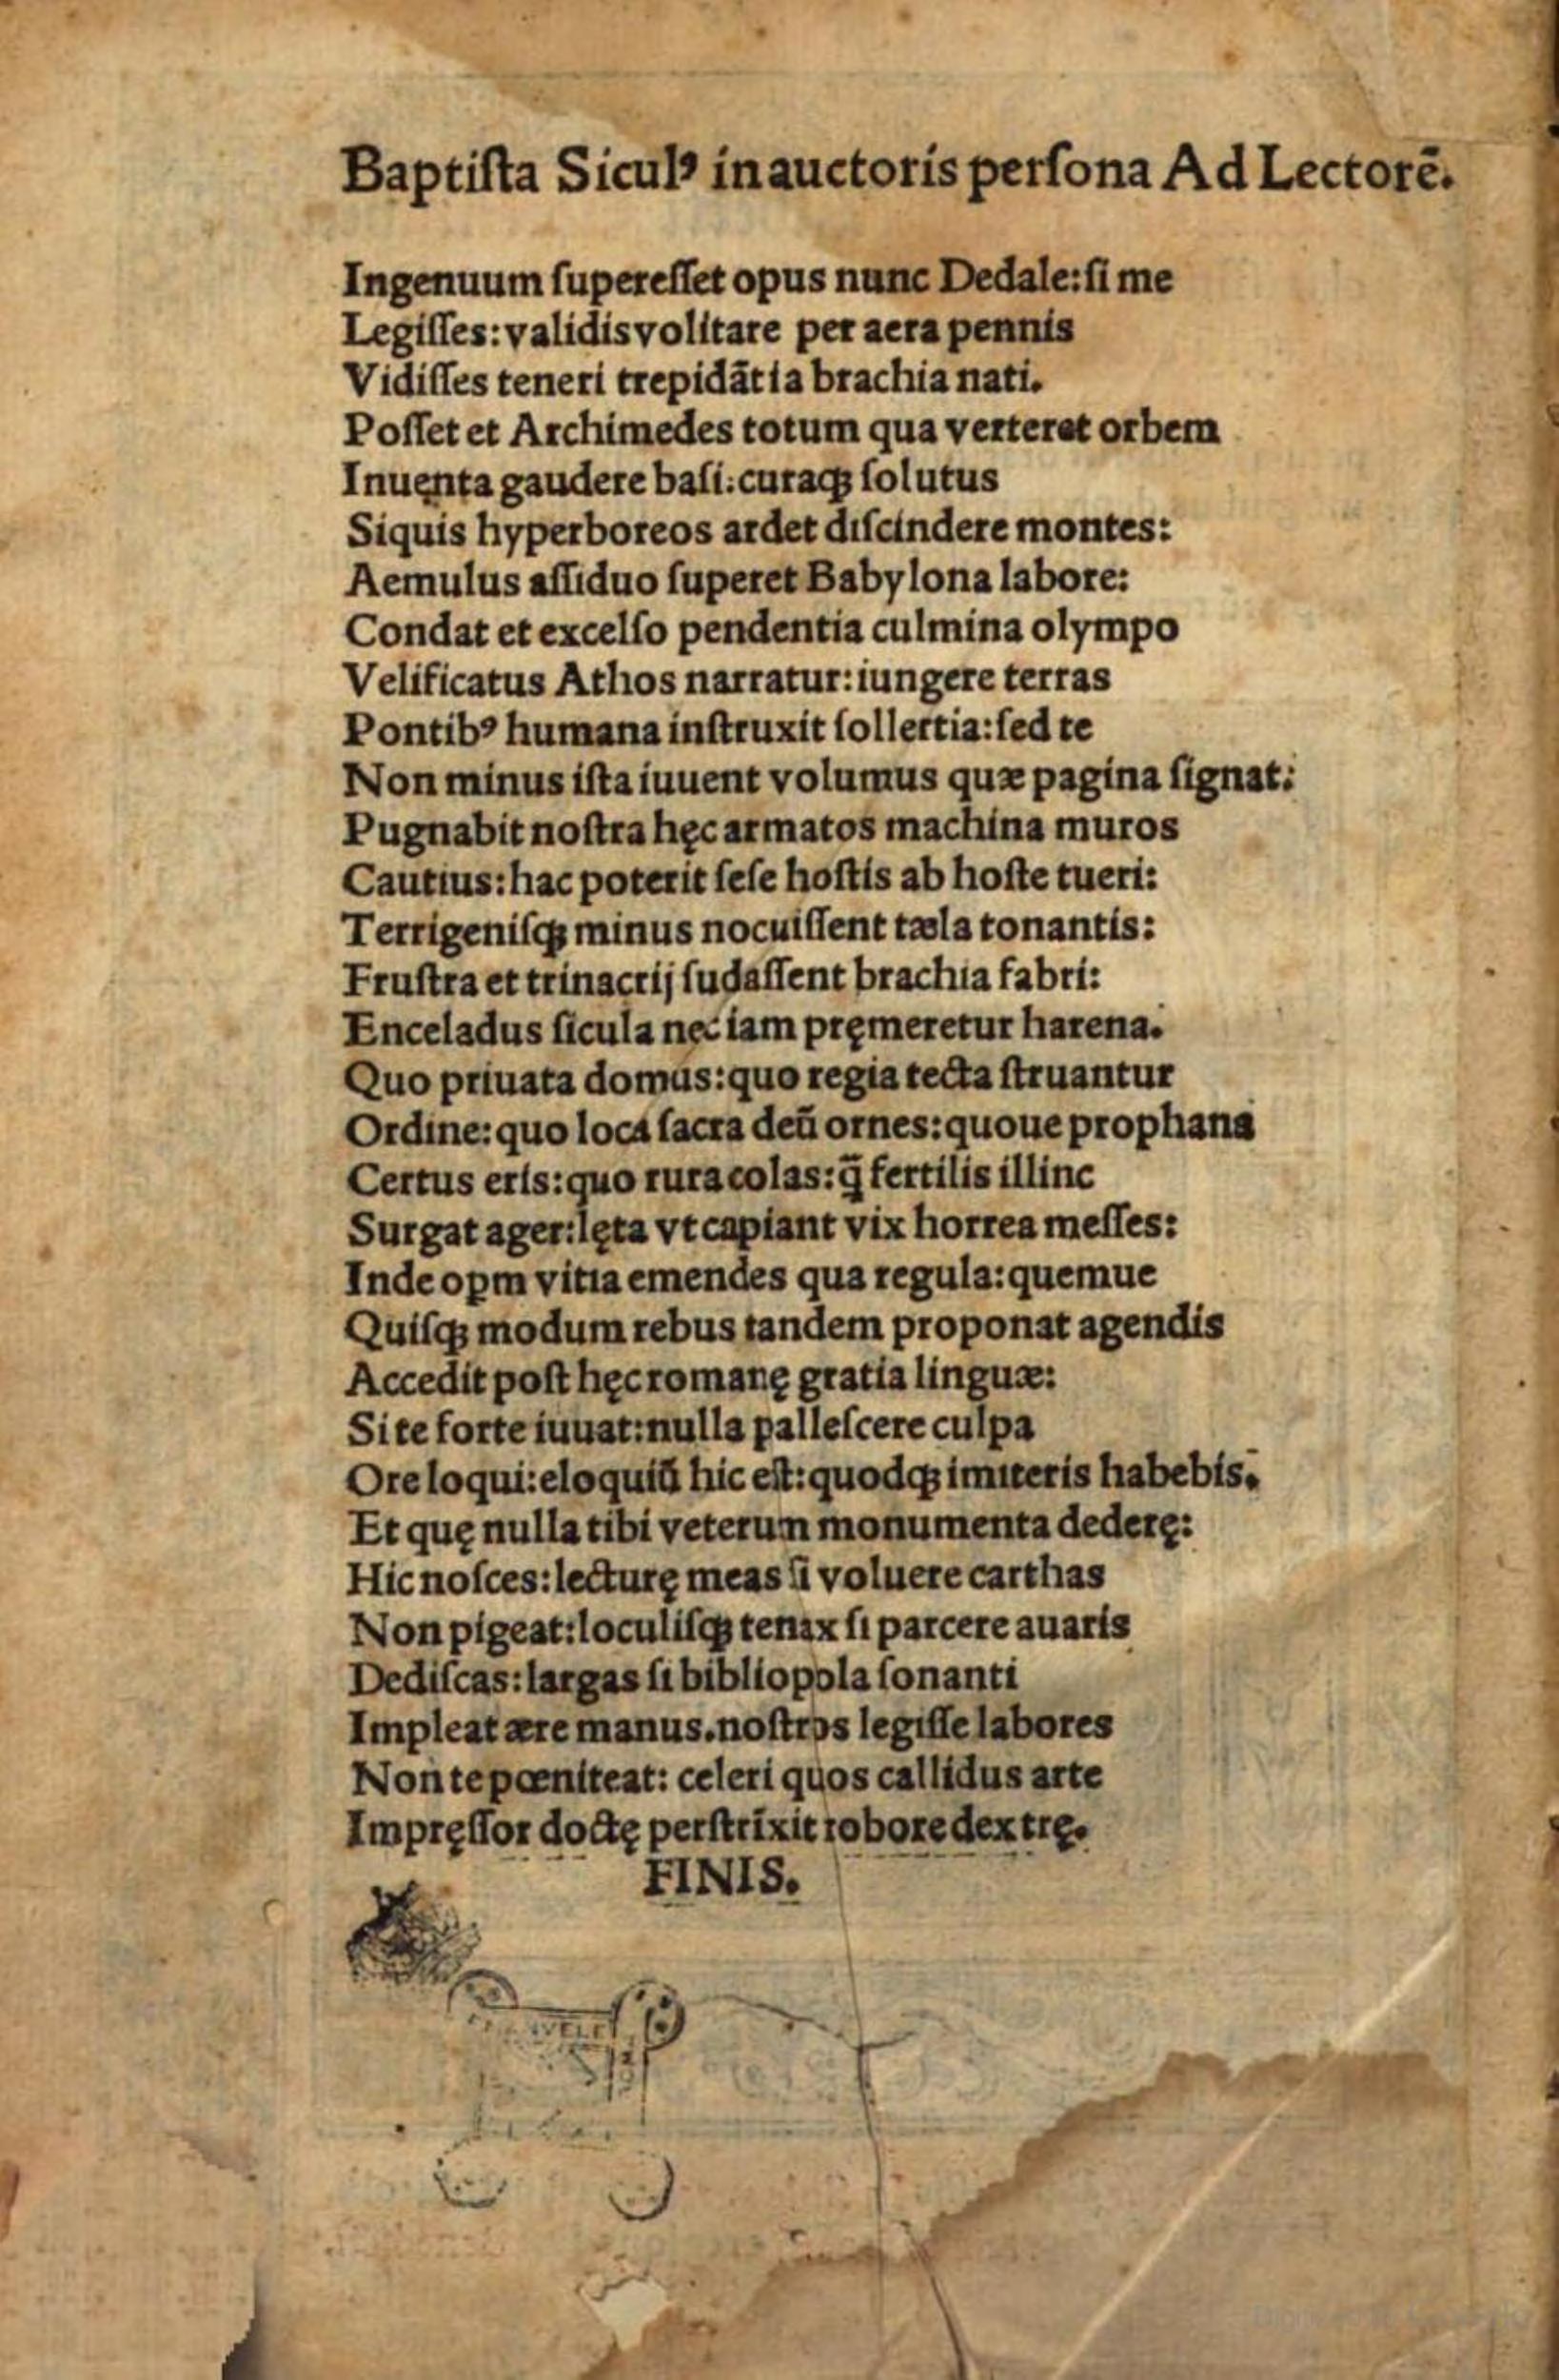 Baptiſta Siculꝰ in auctoris perſona Ad Lectorē.
Ingenuum ſupereſſet opus nunc Dedale: ſi me
Legiſſes: validis volitare per aera pennis
Vidiſſes teneri trepidātia brachia nati.
Poſſet et Archimedes totum qua verteret orbem
Inuęnta gaudere baſi: curaqꝫ ſolutus
Siquis hyperboreos ardet diſcindere montes:
Aemulus aſſiduo ſuperet Babylona labore:
Condat et excelſo pendentia culmina olympo
Velificatus Athos narratur: iungere terras
Pontibꝰ humana inſtruxit ſollertia: ſed te
Non minus iſta iuuent volumus quæ pagina ſignat:
Pugnabit noſtra hęc armatos machina muros
Cautius: hac poterit ſeſe hoſtis ab hoſte tueri:
Terrigeniſqꝫ minus nocuiſſent tæla tonantis:
Fruſtra et trinacrij ſudaſſent brachia fabri:
Enceladus ſicula nęc iam pręmeretur harena.
Quo priuata domus: quo regia tecta ſtruantur
Ordine: quo loca ſacra deū ornes: quoue prophana
Certus eris: quo rura colas: q̄ fertilis illinc
Surgat ager: lęta vt capiant vix horrea meſſes:
Inde oꝑm vitia emendes qua regula: quemue
Quiſqꝫ modum rebus tandem proponat agendis
Accedit poſt hęc romanę gratia linguæ:
Si te forte iuuat: nulla palleſcere culpa
Ore loqui: eloquiū hic eſt: quodqꝫ imiteris habebis.
Et quę nulla tibi veterum monumenta dederę:
Hic noſces: lecturę meas ſi voluere carthas
Non pigeat: loculiſqꝫ tenax ſi parcere auaris
Dediſcas: largas ſi bibliopola ſonanti
Impleat ære manus. noſtros legiſſe labores
Non te pœniteat: celeri quos callidus arte
Impręſſor doctę perſtrīxit robore dextrę.
FINIS.